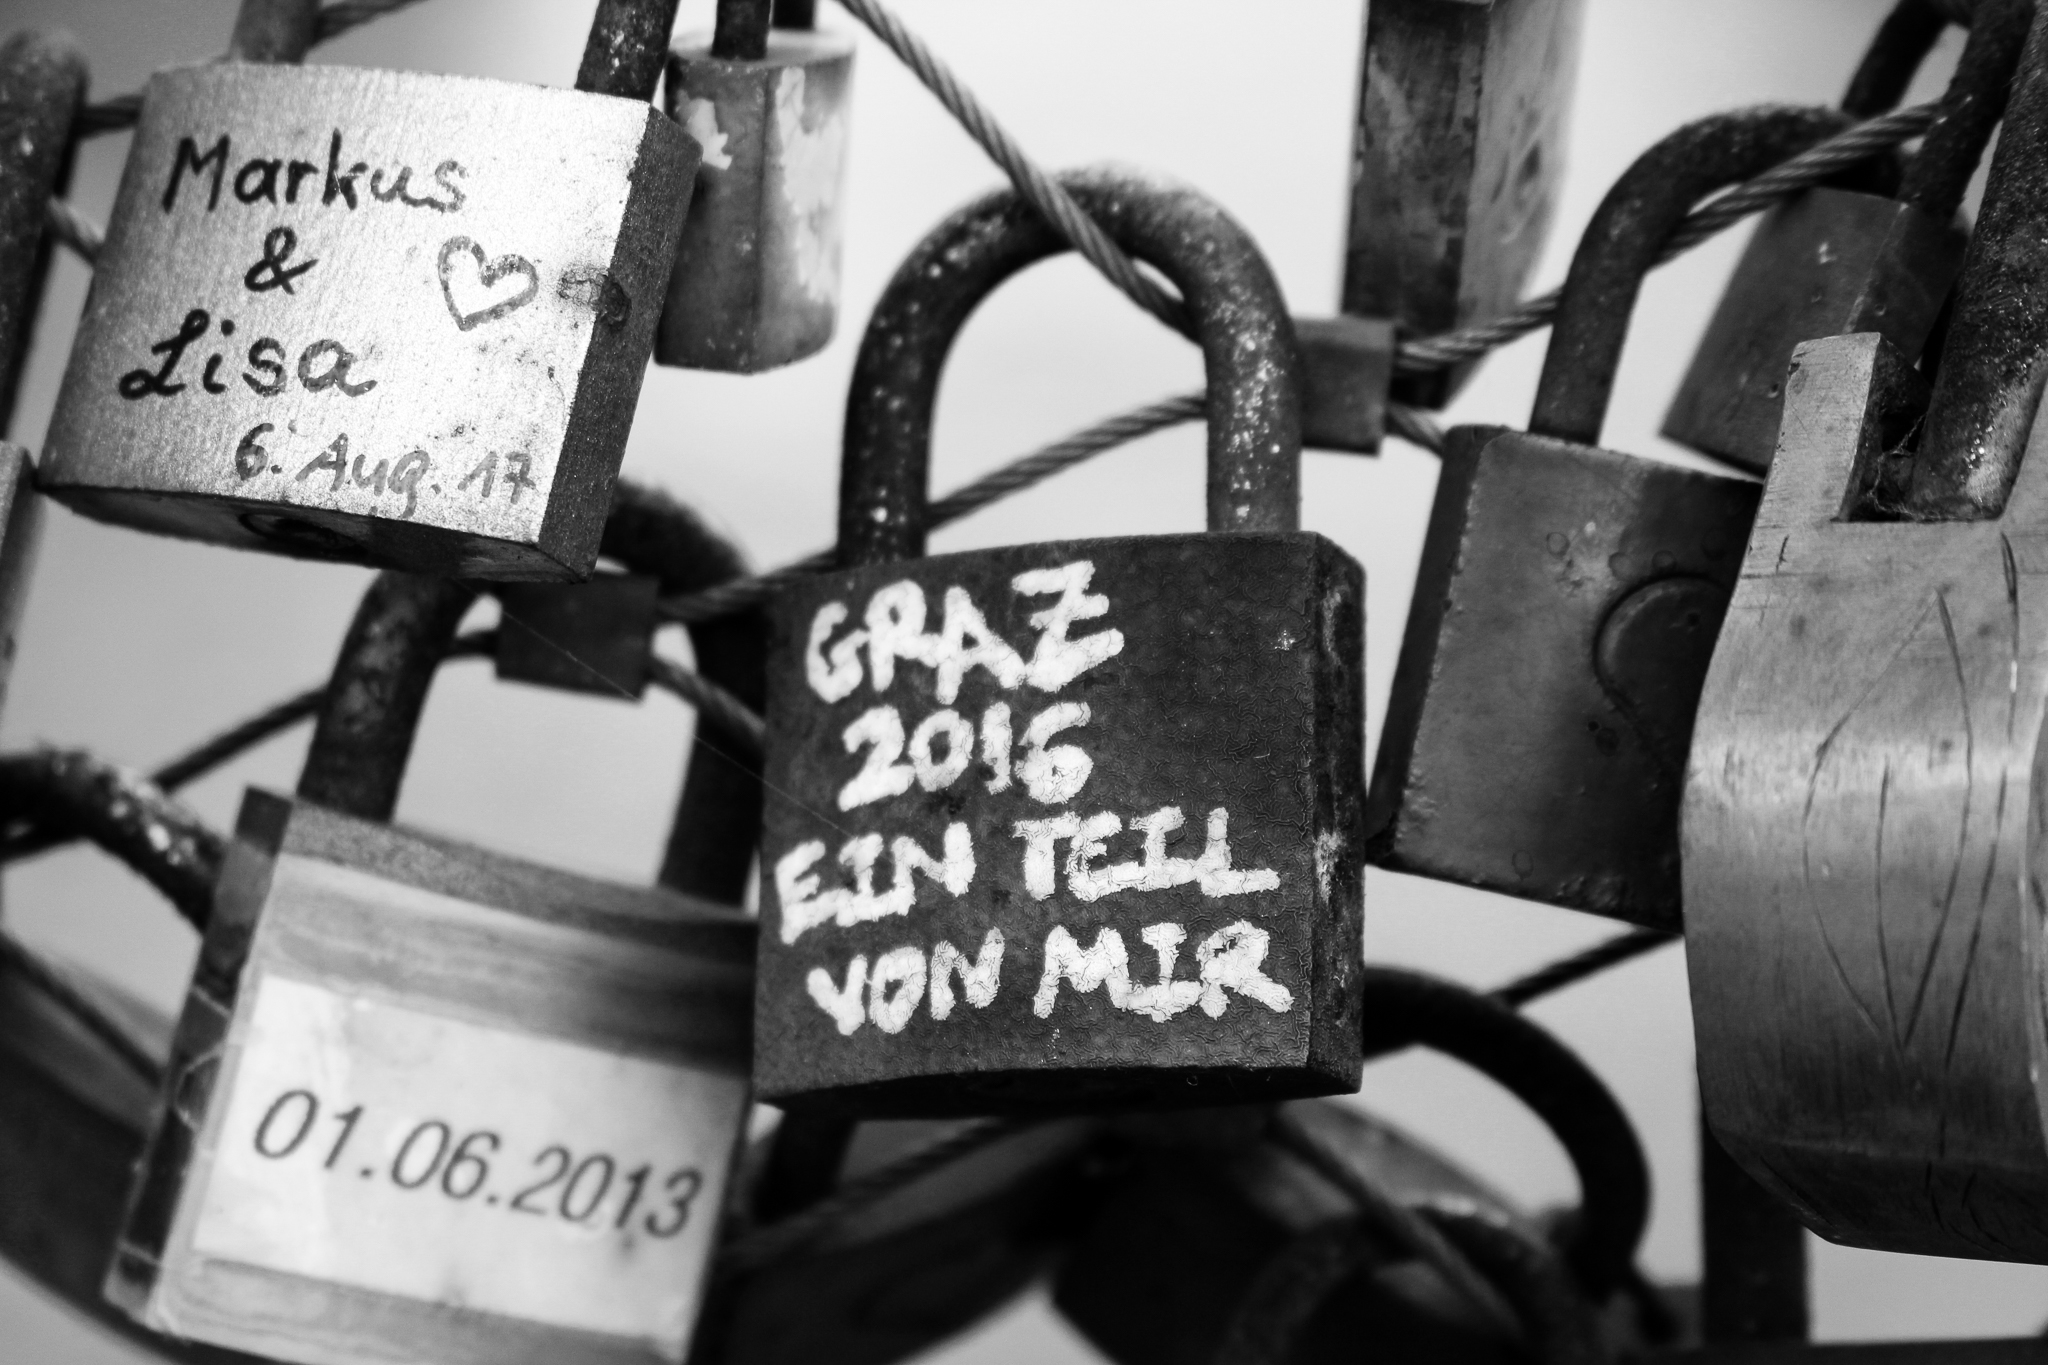 Markus
&
Lisa
6. Aug. 17
GRAZ
2016
EIN TEIL
VON MIR
01.06.2013